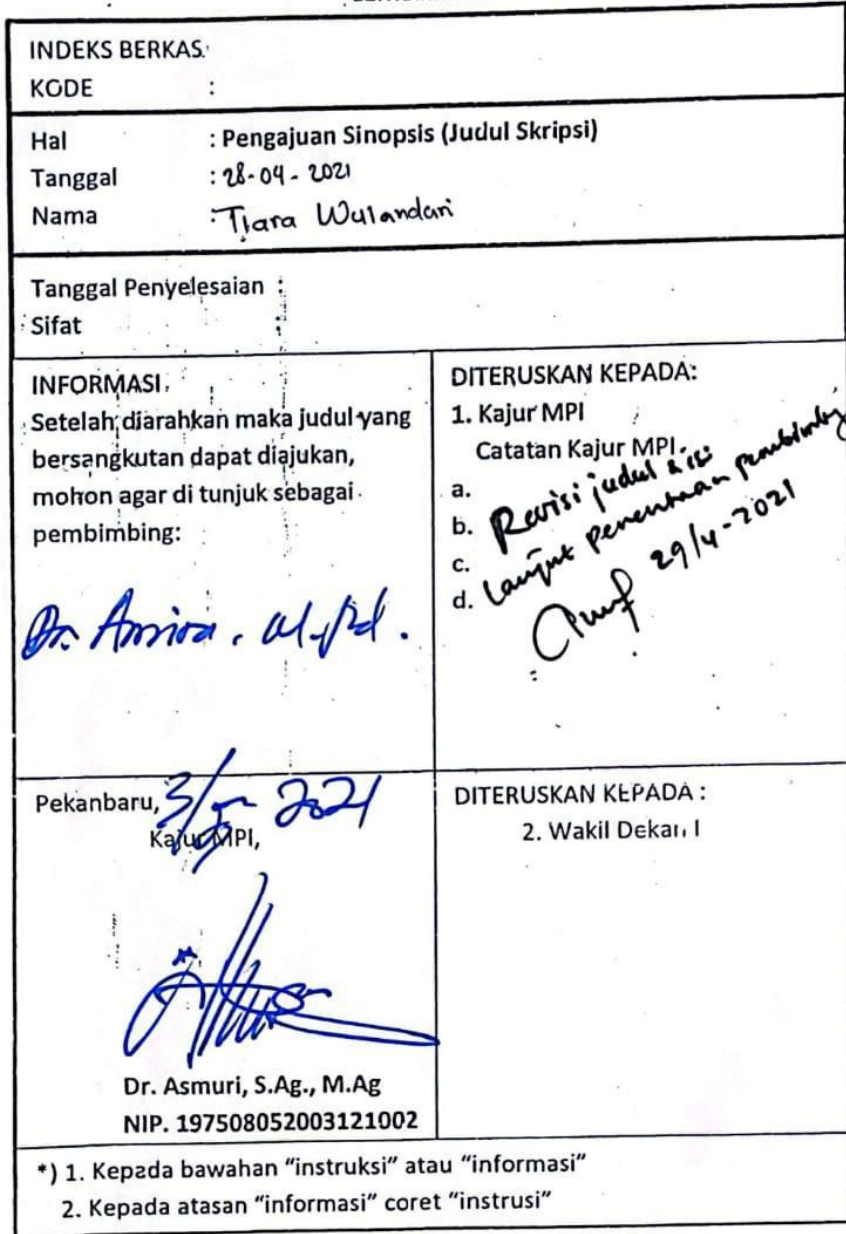 INDEKS BERKAS:
KODE :
Hal : Pengajuan Sinopsis (Judul Skripsi)
Tanggal : 28-04-2021
Nama : Tiara Wulandari
Tanggal Penyelesaian :
Sifat :
INFORMASI.
Setelah diarahkan maka judul yang
bersangkutan dapat diajukan,
mohon agar di tunjuk sebagai
pembimbing:
Dr.
M.Pd.
DITERUSKAN KEPADA:
1. Kajur MPI
Catatan Kajur MPI.
a.
b. Revisi judul & isi
c.
d. Lanjut penentuan pembimbing
29/4-2021
Pekanbaru, 3/ 2021
Kajur MPI,
Dr. Asmuri, S.Ag., M.Ag
NIP. 197508052003121002
DITERUSKAN KEPADA :
2. Wakil Dekan I
*) 1. Kepada bawahan "instruksi" atau "informasi"
2. Kepada atasan "informasi" coret "instrusi"